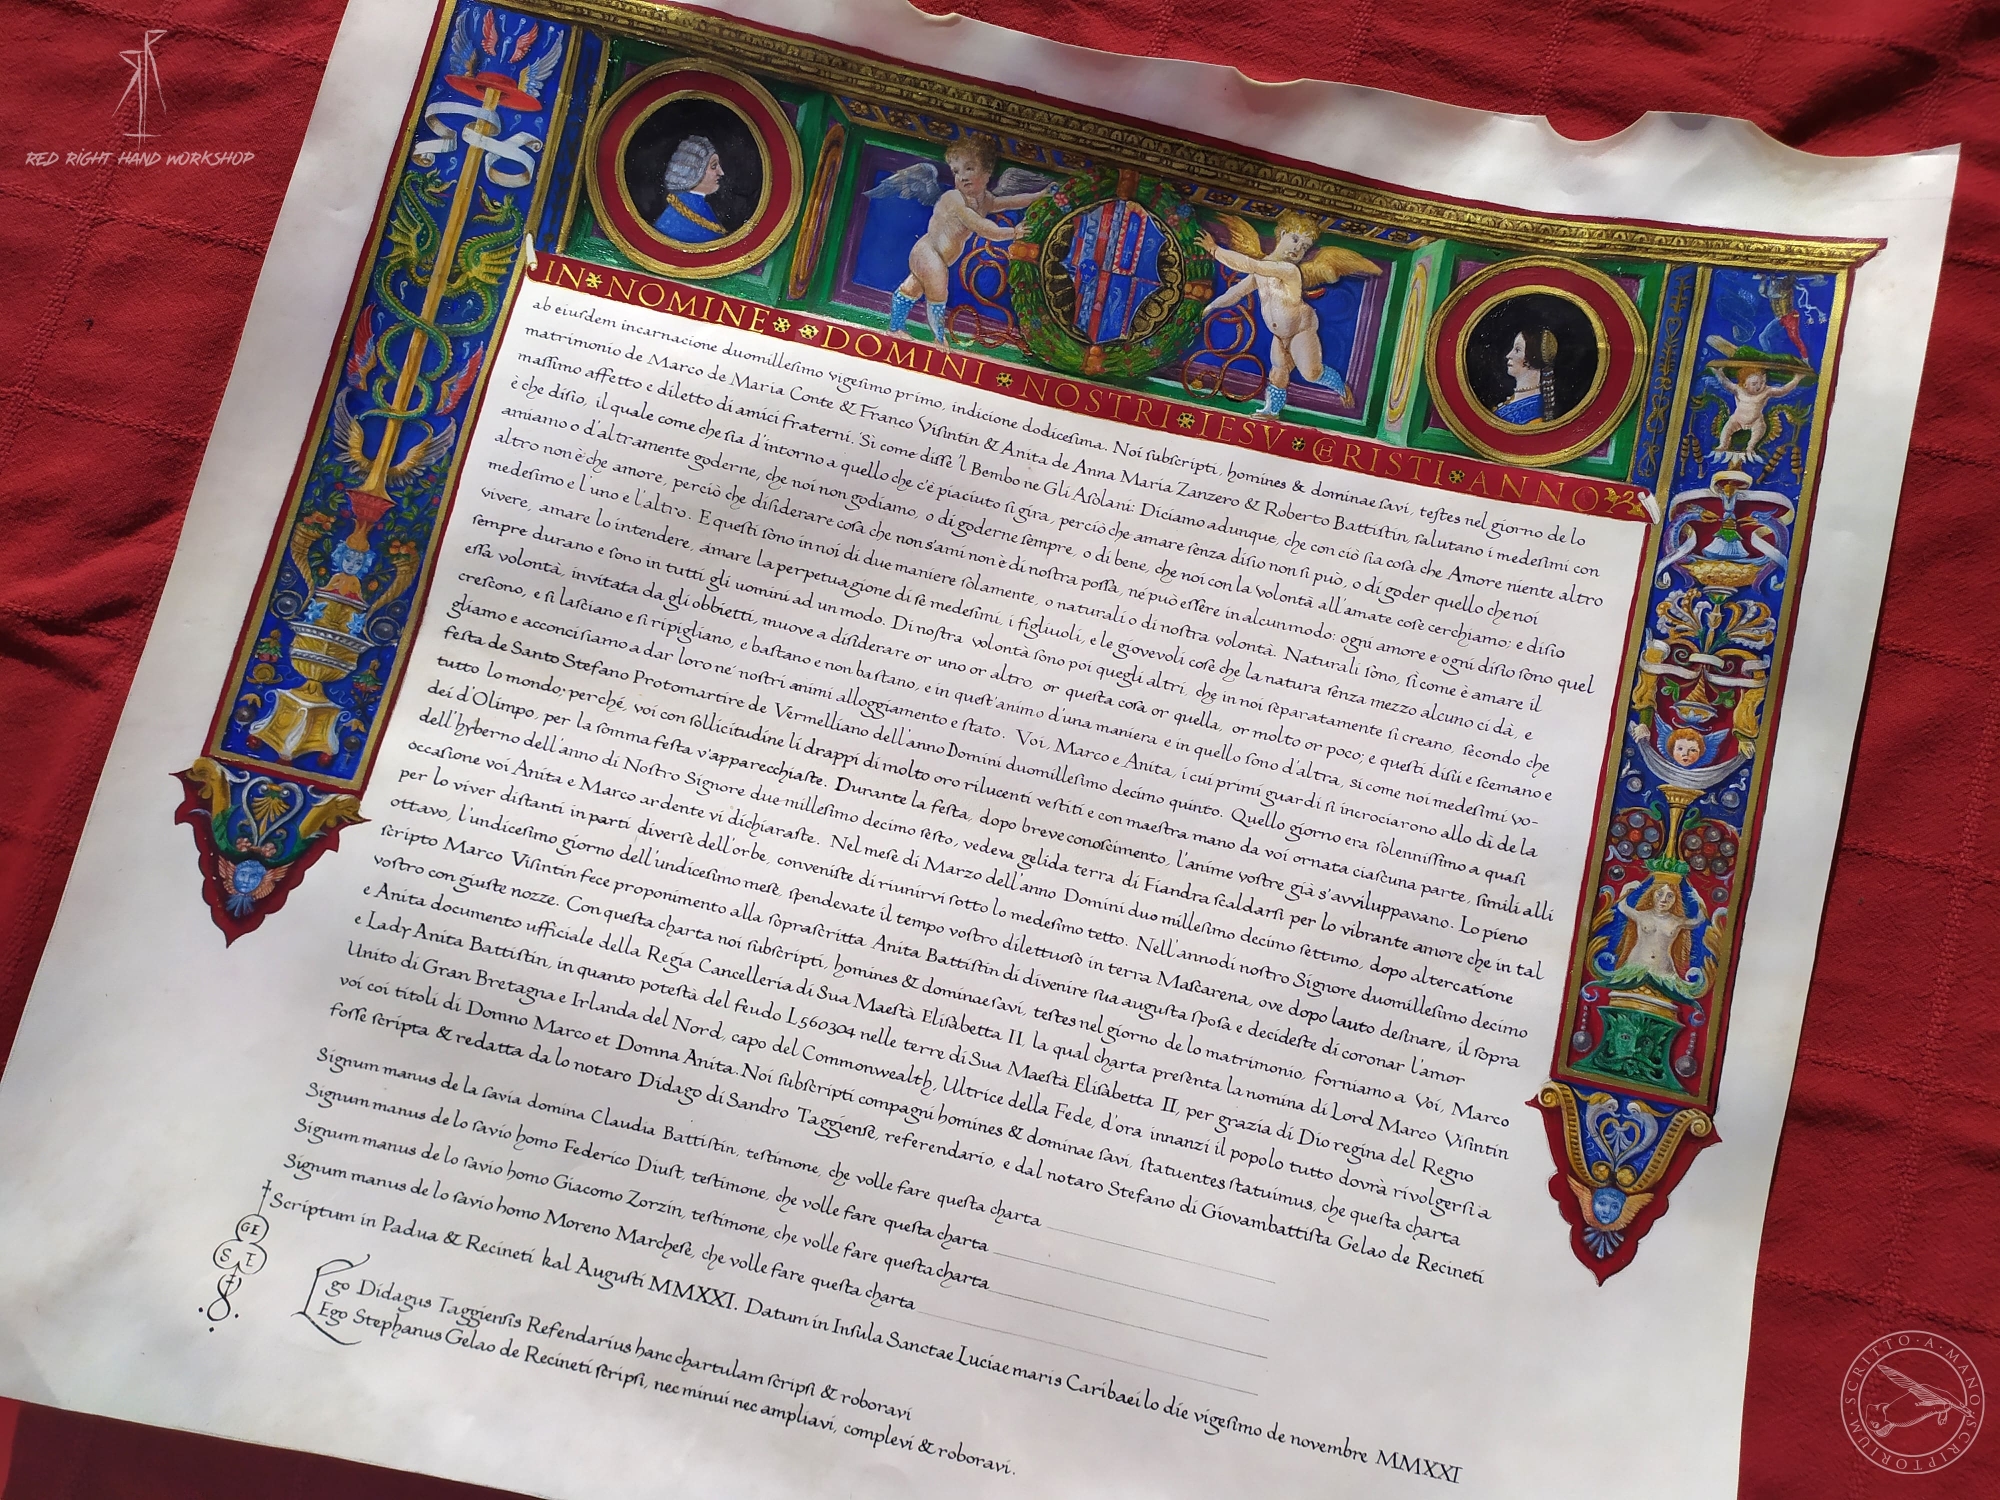 RED RIGHT HAND WORKSHOP
IN NOMINE DOMINI NOSTRI IESV CHRISTI ANNO
ab eiusdem incarnacione duomillesimo vigesimo primo, indicione dodicesima. Noi subscripti, homines & dominae savi, testes nel giorno de lo
matrimonio de Marco de Maria Conte & Franco Visintin & Anita de Anna Maria Zanzero & Roberto Battistin, salutano i medesimi con
massimo affetto e diletto di amici fraterni. Sì come disse 'l Bembo ne Gli Asolani: Diciamo adunque, che con ciò sia cosa che Amore niente altro
è che disio, il quale come che sia d'intorno a quello che c'è piaciuto si gira, perciò che amare senza disio non si può, o di goder quello che noi
amiamo o d'altramente goderne, che noi non godiamo, o di goderne sempre, o di bene, che noi con la volontà all'amate cose cerchiamo; e disio
altro non è che amore, perciò che disiderare cosa che non s'ami non è di nostra possa, né può essere in alcun modo: ogni amore e ogni disio sono quel
medesimo e l'uno e l'altro. E questi sono in noi di due maniere solamente, o naturali o di nostra volontà. Naturali sono, sì come è amare il
vivere, amare lo intendere, amare la perpetuagione di sé medesimi, i figliuoli, e le giovevoli cose che la natura senza mezzo alcuno ci dà, e
sempre durano e sono in tutti gli uomini ad un modo. Di nostra volontà sono poi quegli altri, che in noi separatamente si creano, secondo che
essa volontà, invitata da gli obbietti, muove a disiderare or uno or altro, or questa cosa or quella, or molto or poco; e questi disii e scemano e
crescono, e si lasciano e si ripigliano, e bastano e non bastano, e in quest'animo d'una maniera e in quello sono d'altra, sì come noi medesimi vo-
gliamo e acconci siamo a dar loro ne' nostri animi alloggiamento e stato. Voi, Marco e Anita, i cui primi guardi si incrociarono allo dì de la
festa de Santo Stefano Protomartire de Vermelliano dell'anno Domini duomillesimo decimo quinto. Quello giorno era solennissimo a quasi
tutto lo mondo; perché, voi con sollicitudine li drappi di molto oro rilucenti vestiti e con maestra mano da voi ornata ciascuna parte, simili alli
dei d'Olimpo, per la somma festa v'apparecchiaste. Durante la festa, dopo breve conoscimento, l'anime vostre già s'avviluppavano. Lo pieno
dell'hyberno dell'anno di Nostro Signore due millesimo decimo sesto, vedeva gelida terra di Fiandra scaldarsi per lo vibrante amore che in tal
occasione voi Anita e Marco ardente vi dichiaraste. Nel mese di Marzo dell'anno Domini duo millesimo decimo settimo, dopo altercatione
per lo viver distanti in parti diverse dell'orbe, conveniste di riunirvi sotto lo medesimo tetto. Nell'anno di nostro Signore duomillesimo decimo
ottavo, l'undicesimo giorno dell'undicesimo mese, spendevate il tempo vostro dilettuoso in terra Mascarena, ove dopo lauto desinare, il sopra
scripto Marco Visintin fece proponimento alla soprascritta Anita Battistin di divenire sua augusta sposa e decideste di coronar l'amor
vostro con giuste nozze. Con questa charta noi subscripti, homines & dominae savi, testes nel giorno de lo matrimonio, forniamo a Voi, Marco
e Anita documento ufficiale della Regia Cancelleria di Sua Maestà Elisabetta II, la qual charta presenta la nomina di Lord Marco Visintin
e Lady Anita Battistin, in quanto potestà del feudo L560304 nelle terre di Sua Maestà Elisabetta II, per grazia di Dio regina del Regno
Unito di Gran Bretagna e Irlanda del Nord, capo del Commonwealth, Ultrice della Fede, d'ora innanzi il popolo tutto dovrà rivolgersi a
voi coi titoli di Domno Marco et Domna Anita. Noi subscripti compagni homines & dominae savi, statuentes statuimus, che questa charta
fosse scripta & redatta da lo notaro Didago di Sandro Taggiense, referendario, e dal notaro Stefano di Giovambattista Gelao de Recineti
Signum manus de la savia domina Claudia Battistin, testimone, che volle fare questa charta
Signum manus de lo savio homo Federico Diust, testimone, che volle fare questa charta
Signum manus de lo savio homo Giacomo Zorzin, testimone, che volle fare questa charta
Signum manus de lo savio homo Moreno Marchese, che volle fare questa charta
Scriptum in Padua & Recineti kal Augusti MMXXI. Datum in Insula Sanctae Luciae maris Caribaei lo die vigesimo de novembre MMXXI
GE
S T
Ego Didagus Taggiensis Refendarius hanc chartulam scripsi & roboravi
Ego Stephanus Gelao de Recineti scripsi, nec minui nec ampliavi, complevi & roboravi.
SCRITTO·A·MANO·SCRIPTORIUM